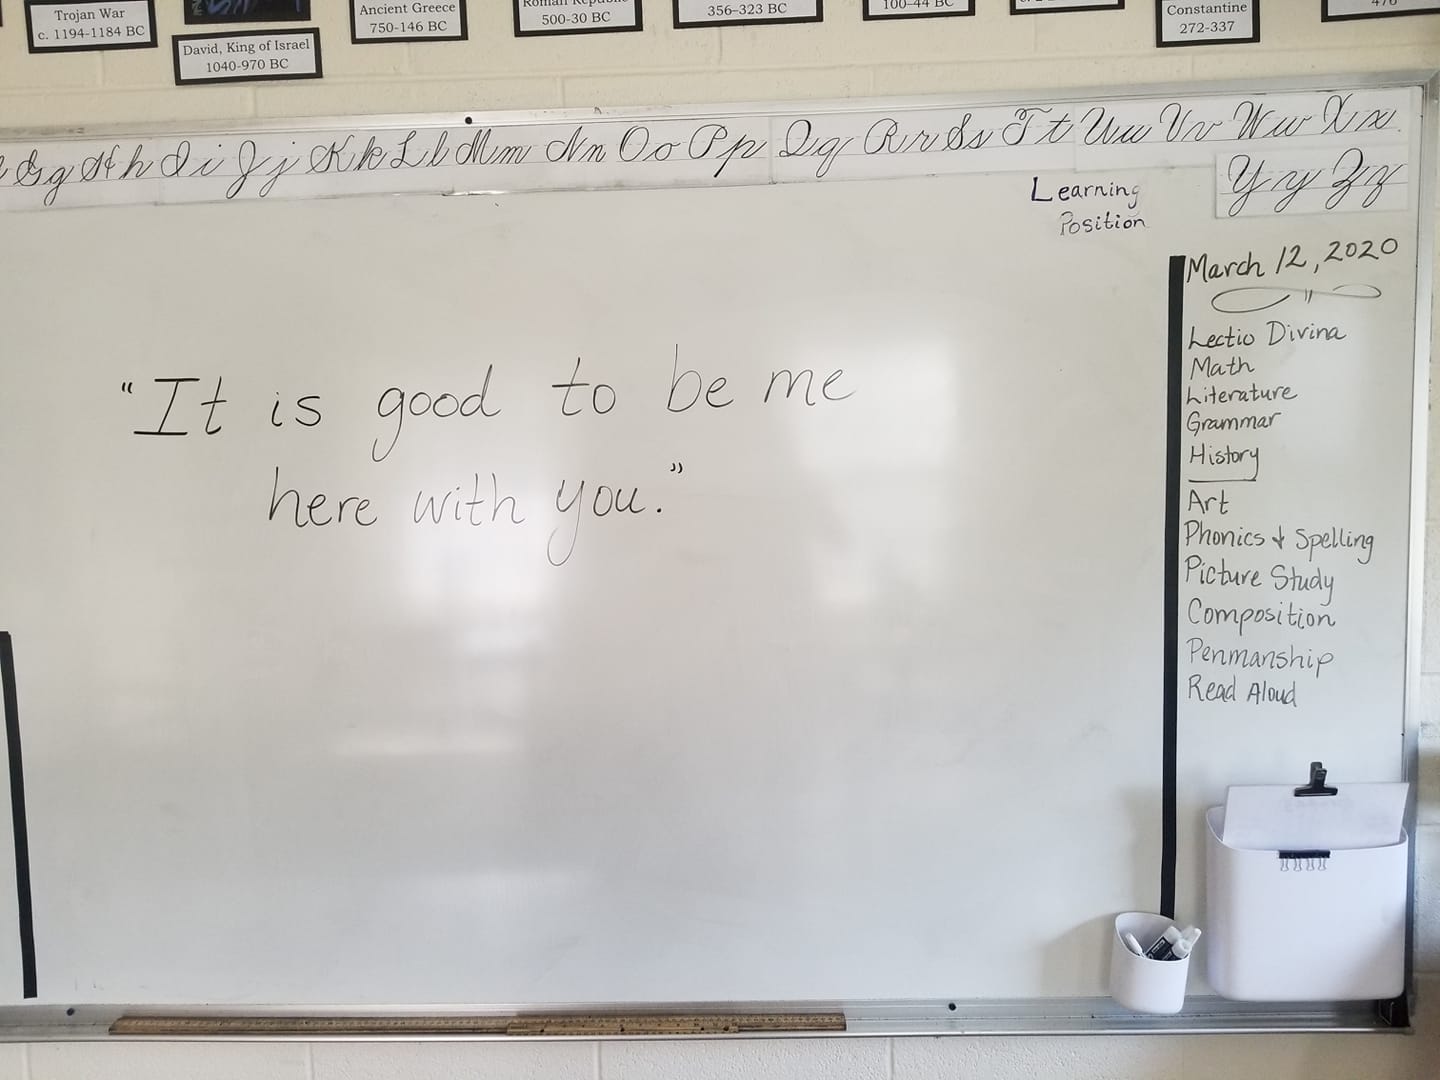 Trojan War
c. 1194-1184 BC
David, King of Israel
1040-970 BC
Ancient Greece
750-146 BC
Roman Republic
500-30 BC
356–323 BC
100–44 BC
Constantine
272-337
476
Gg Hh Ii Jj Kk Ll Mm Nn Oo Pp Qq Rr Ss Tt Uu Vv Ww Xx
Yy Zz
Learning
Position
"It is good to be me
here with you."
March 12, 2020
Lectio Divina
Math
Literature
Grammar
History
Art
Phonics & Spelling
Picture Study
Composition
Penmanship
Read Aloud